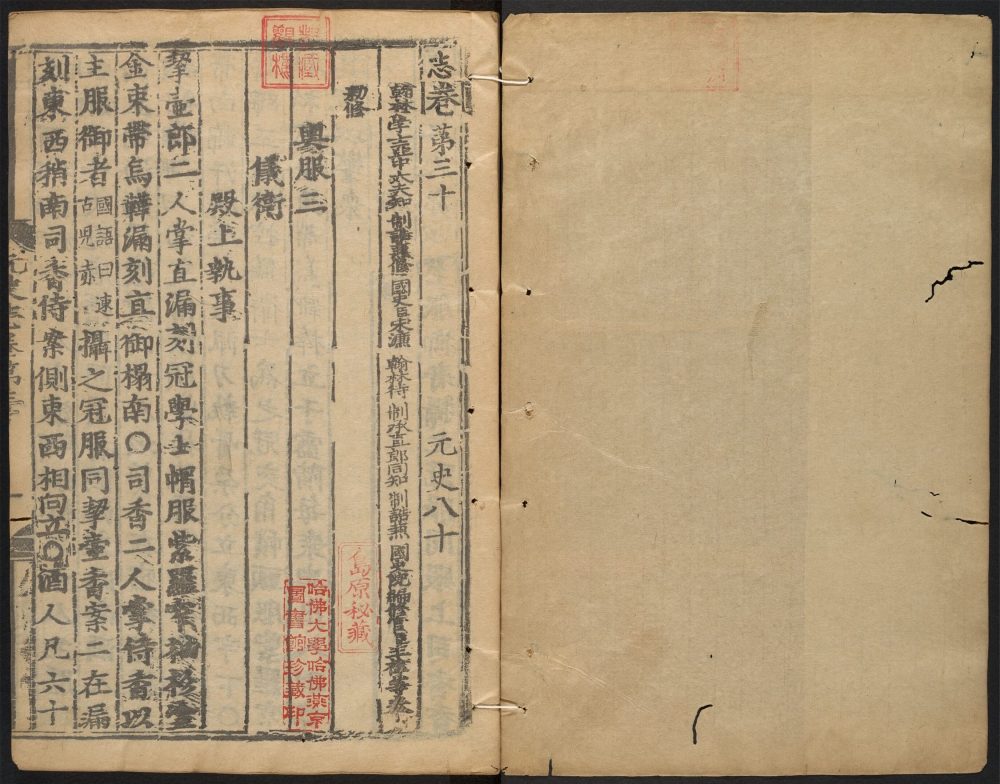 志卷第三十 元史八十
翰林學士亞中大夫知制誥兼修國史臣宋濂 翰林待制承直郎同知制誥兼國史院編修官臣王褘等奉
勑修
輿服三
儀衛
殿上執事
挈壺郎二人掌直漏刻冠學士帽服紫羅窄袖衫塗
金束帶烏鞾漏刻直御榻南〇司香二人掌侍香以
主服御者國語曰速古兒赤攝之冠服同挈壺香案二在漏
刻東西稍南司香侍案側東西相向立〇酒人凡六十
島原秘藏
哈佛大學哈佛燕京
圖書館珍藏印